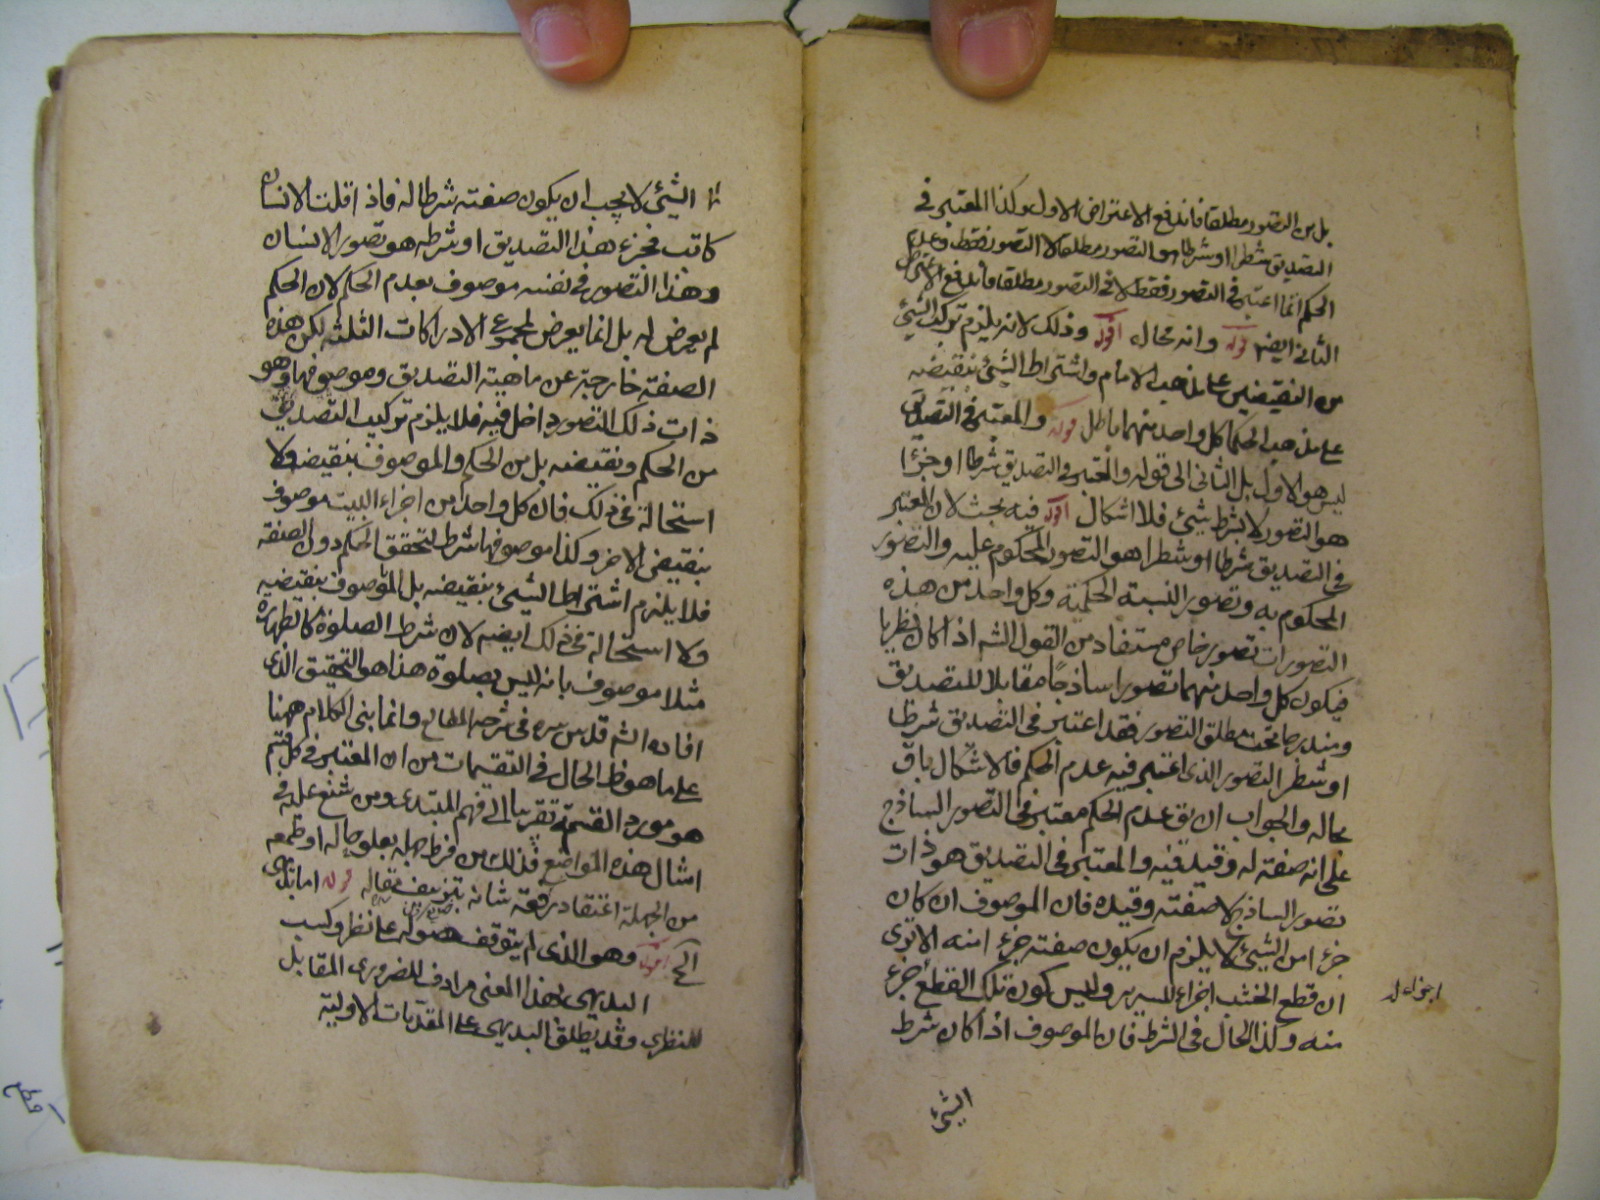 بل من التصور مطلقا فاندفع الاعتراض الاول وكذا المعتبر في
التصديق شطرا او شرطا هو التصور مطلقا لا التصور فقط وعدم
الحكم انما اعتبر في التصور فقط لا في التصور مطلقا فاندفع الاعتراض
الثاني ايضا قوله وانه محال اقول وذلك لانه يلزم تركب الشيء
من النقيضين على مذهب الامام واشتراط الشيء بنقيضه
على مذهب الحكماء كل واحد منهما باطل قوله والمعتبر في التصديق
ليس هو الاول بل الثاني الى قوله والمعتبر في التصديق شرطا او جزءا
هو التصور لا بشرط شيء فلا اشكال اقول فيه بحث لان المعتبر
في التصديق شرطا او شطرا هو التصور المحكوم عليه والتصور
المحكوم به وتصور النسبة الحكمية وكل واحد من هذه
التصورات تصور خاص مستفاد من القول الشه اذا كان نظريا
فيكون كل واحد منهما تصورا ساذجا مقابلا للتصديق
ومندرجا تحت مطلق التصور فقد اعتبر في التصديق شرطا
او شطر التصور الذي اعتبر فيه عدم الحكم فالاشكال باق
بحاله والجواب ان يق عدم الحكم معتبر في التصور الساذج
على انه صفة له وقيد فيه والمعتبر في التصديق هو ذات
تصور الساذج لا صفته وقيده فان الموصوف ان كان
جزءا من الشيء لا يلزم ان يكون صفته جزءا منه الا ترى
ان قطع الخشب اجزاء للسرير وليس كون تلك القطع جزء
اجزاء له
منه وكذا الحال في الشرط فان الموصوف اذا كان شرط
الشيء
الشيء لا يجب ان يكون صفته شرطا له فاذا قلت الانسان
كاتب فجزء هذا التصديق او شرطه هو تصور الانسان
وهذا التصور في نفسه موصوف بعدم الحكم لان الحكم
لم يعرض له بل انما يعرض لمجموع الادراكات الثلثه لكن هذه
الصفة خارجة عن ماهية التصديق وموصوفها وهو
ذات ذلك التصور داخل فيه فلا يلزم تركيب التصديق
من الحكم ونقيضه بل من الحكم والموصوف بنقيضه ولا
استحالة في ذلك فان كل واحد من اجزاء البيت موصوف
بنقيض الاخر وكذا موصوفها شرط لتحقق الحكم دون الصفة
فلا يلزم اشتراط الشيء بنقيضه بل الموصوف بنقيضه
ولا استحالة في ذلك ايضا لان شرط الصلوة كالطهارة
مثلا موصوف بانه ليس بصلوة هذا هو التحقيق الذي
افاده الشه قدس سره في شرحه المطالع وانما بنى الكلام ههنا
على ما هو ظ الحال في التقسيمات من ان المعتبر في كل قسم
هو مورد القسمة تقريبا الى فهم المبتدى ومن شنع عليه في
امثال هذه المواضع فذلك من فرط جهله بعلو حاله او طمعه
من الجهلة اعتقاد رفعة شانه بتزييف مقاله قوله اما بديهي
الخ اقول وهو الذي لم يتوقف حصوله على نظر وكسب
البديهي بهذا المعنى مرادف للضروري المقابل
للنظري وقد يطلق البديهي على المقدمات الاولية